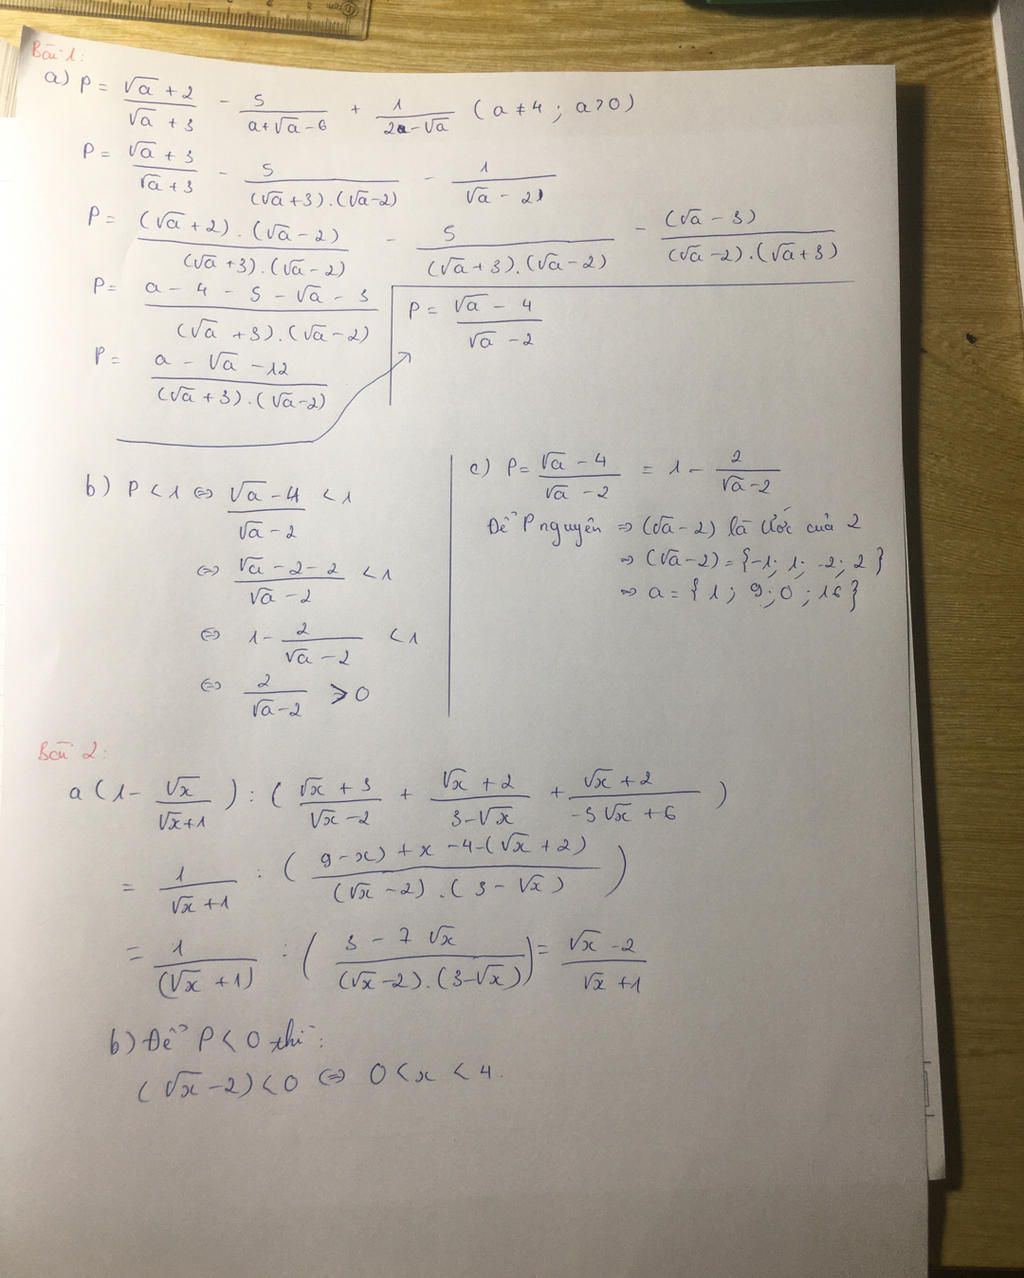 Bài 1:
a) P = (√a + 2)/(√a + 3) - 5/(a+√a-6) + 1/(2-√a) (a ≠ 4; a>0)
P = (√a + 3)/(√a+3) - 5/((√a+3).(√a-2)) - 1/(√a - 2)
P = ((√a+2).(√a-2))/((√a+3).(√a-2)) - 5/((√a+3).(√a-2)) - (√a - 3)/((√a-2).(√a+3))
P = (a - 4 - 5 - √a - 3)/((√a + 3).(√a-2))
P = (a - √a - 12)/((√a+3).(√a-2))
P = (√a - 4)/(√a - 2)
b) P < 1 ⇔ (√a - 4)/(√a - 2) < 1
⇔ (√a - 2 - 2)/(√a - 2) < 1
⇔ 1 - 2/(√a - 2) < 1
⇔ 2/(√a-2) > 0
c) P = (√a - 4)/(√a - 2) = 1 - 2/(√a-2)
Để P nguyên ⇒ (√a - 2) là ước của 2
⇒ (√a-2) = {-1; 1; -2; 2}
⇒ a = {1; 9; 0; 16}
Bài 2:
a (1 - √x/(√x+1)) : ((√x + 3)/(√x - 2) + (√x + 2)/(3-√x) + (√x + 2)/(-5√x + 6))
= 1/(√x + 1) : ((9-x) + x - 4 - (√x + 2))/((√x - 2).(3 - √x)))
= 1/(√x + 1) : ((3 - 7√x)/((√x-2).(3-√x))) = (√x - 2)/(√x + 1)
b) Để P < 0 thì:
(√x - 2) < 0 ⇔ 0 < x < 4.